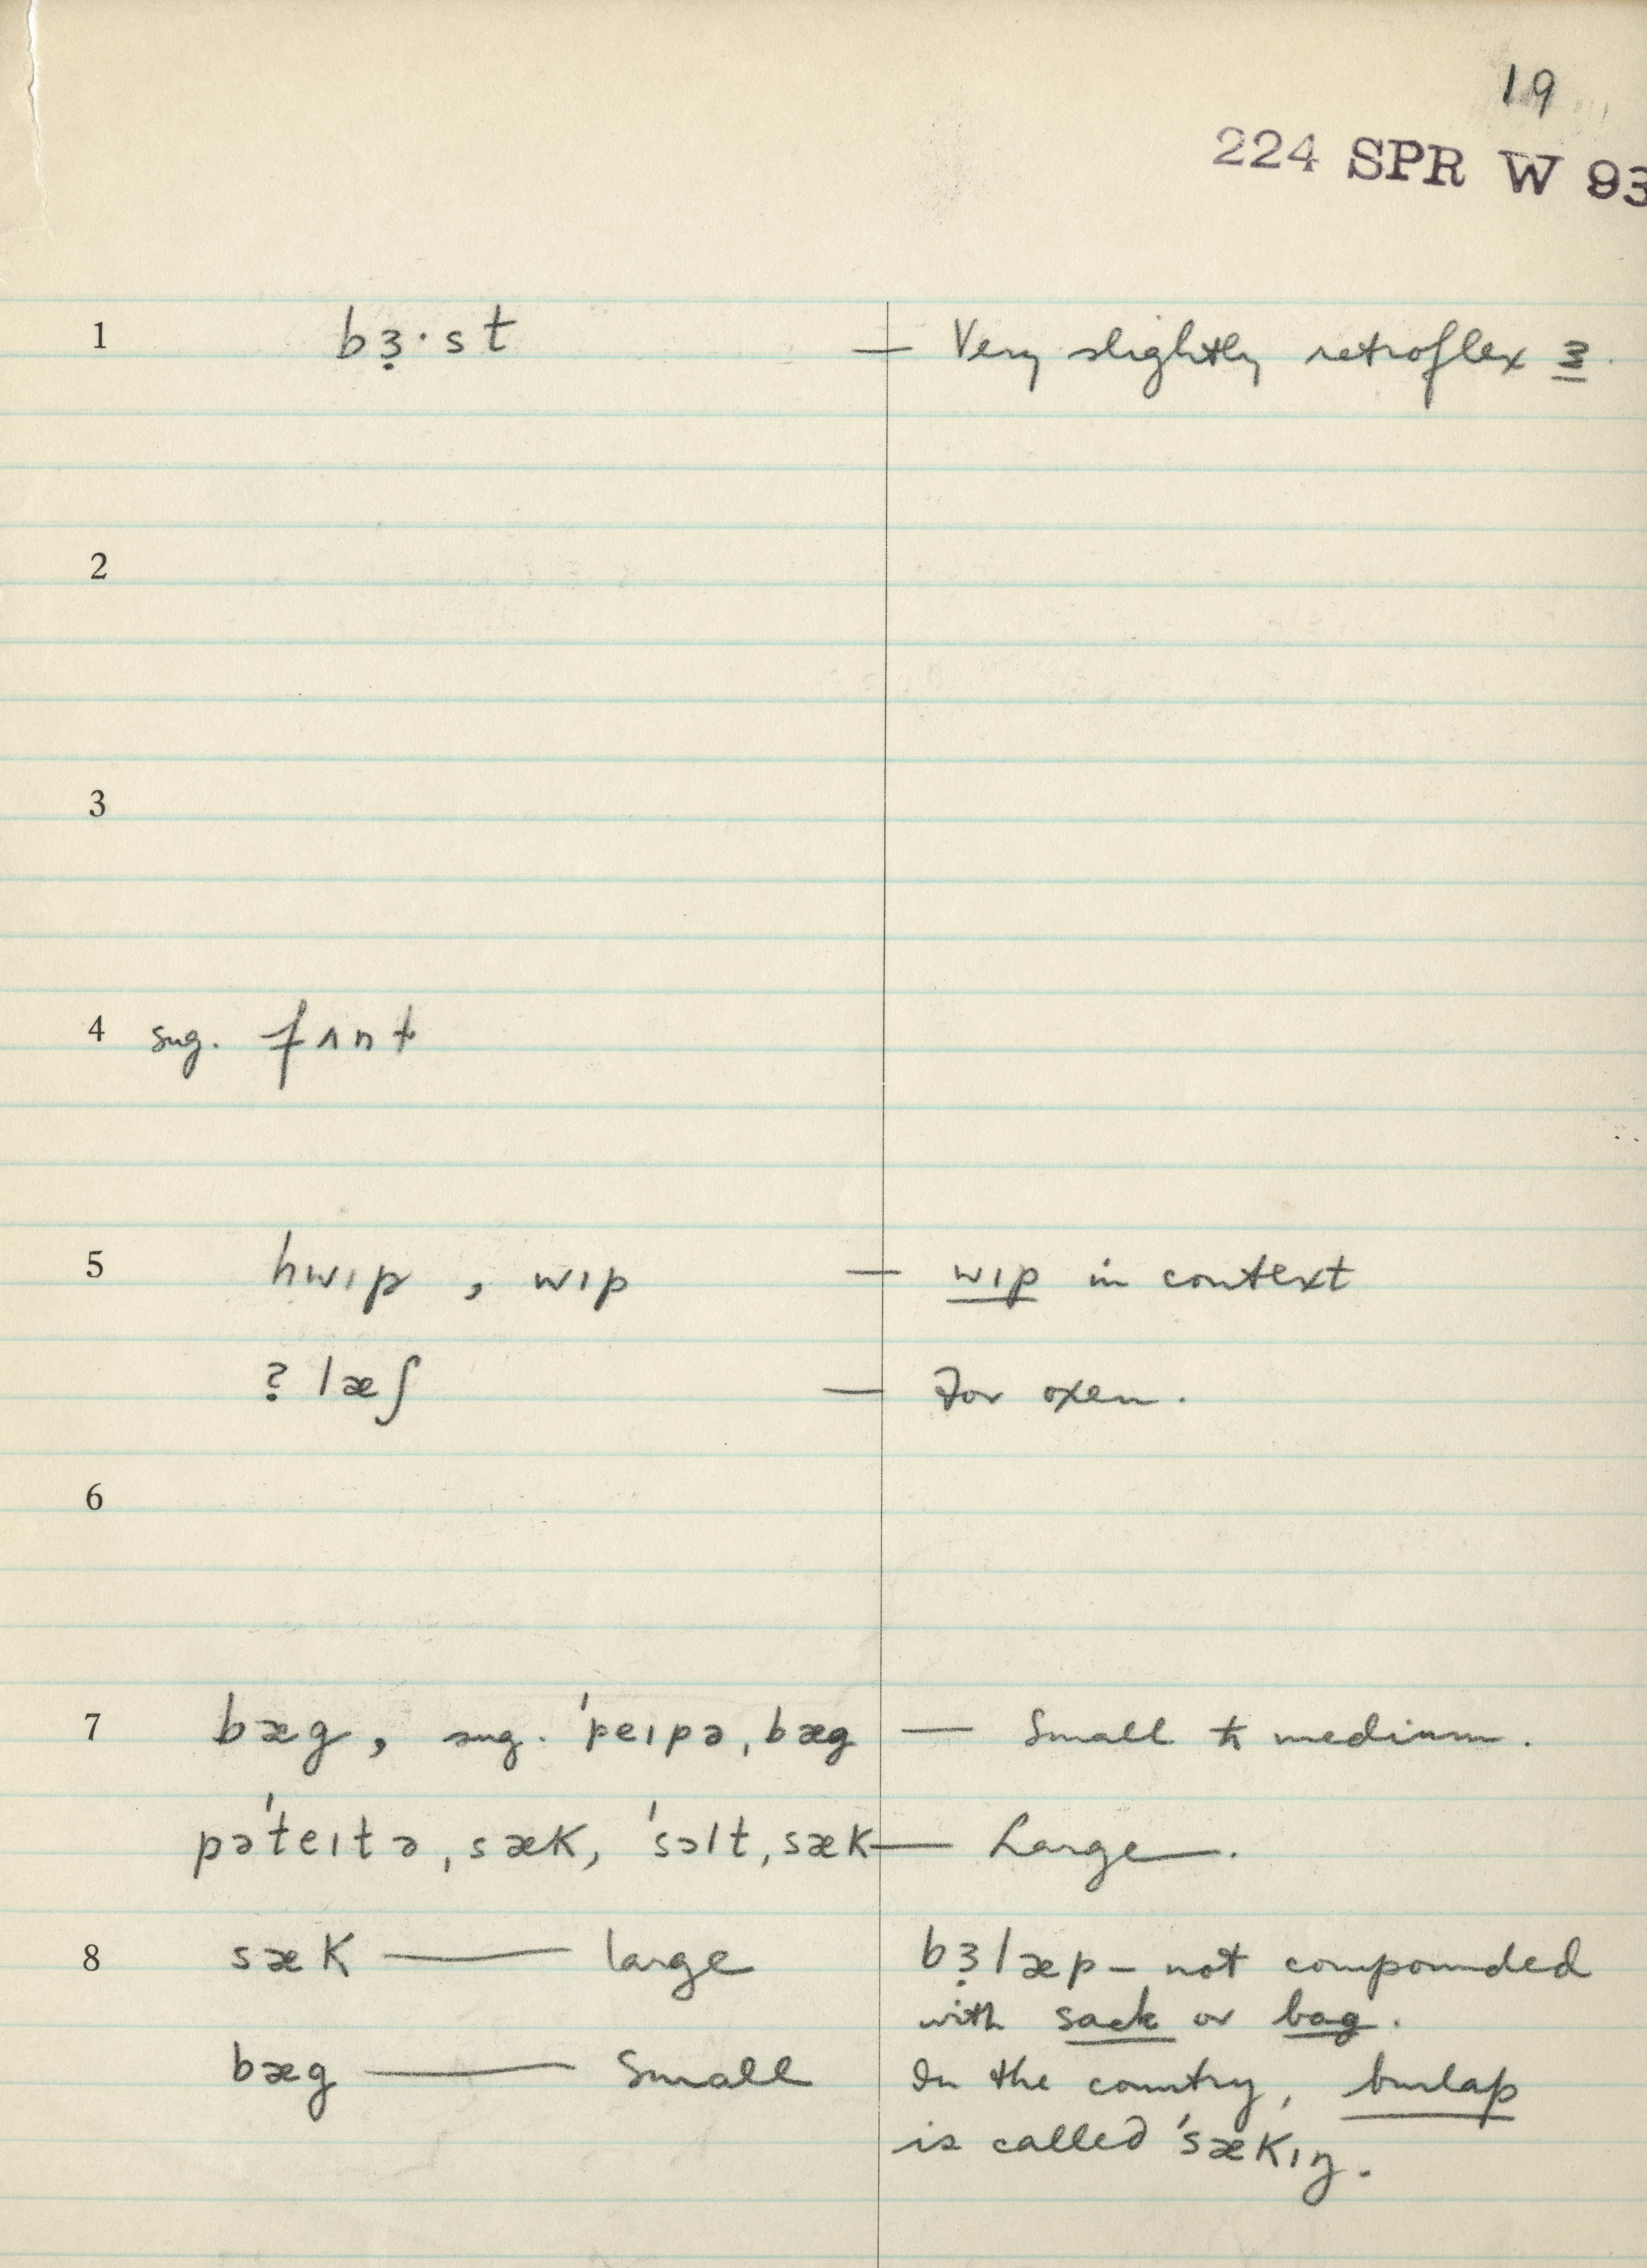 19
224 SPR W 93
1 bɜ̣·st — Very slightly retroflex ɜ.
2
3
4 sug. fʌnt
5 hwɪp, wɪp — wɪp in context
? læʃ — For oxen.
6
7 bæg, sug. ˈpeɪpə ˌbæg — Small to medium.
pəˈteɪtə ˌsæk, ˈsɔlt ˌsæk — Large.
8 sæk — large bɜ̣læp – not compounded
with sack or bag.
bæg — Small In the country, burlap
is called ˈsækɪŋ.